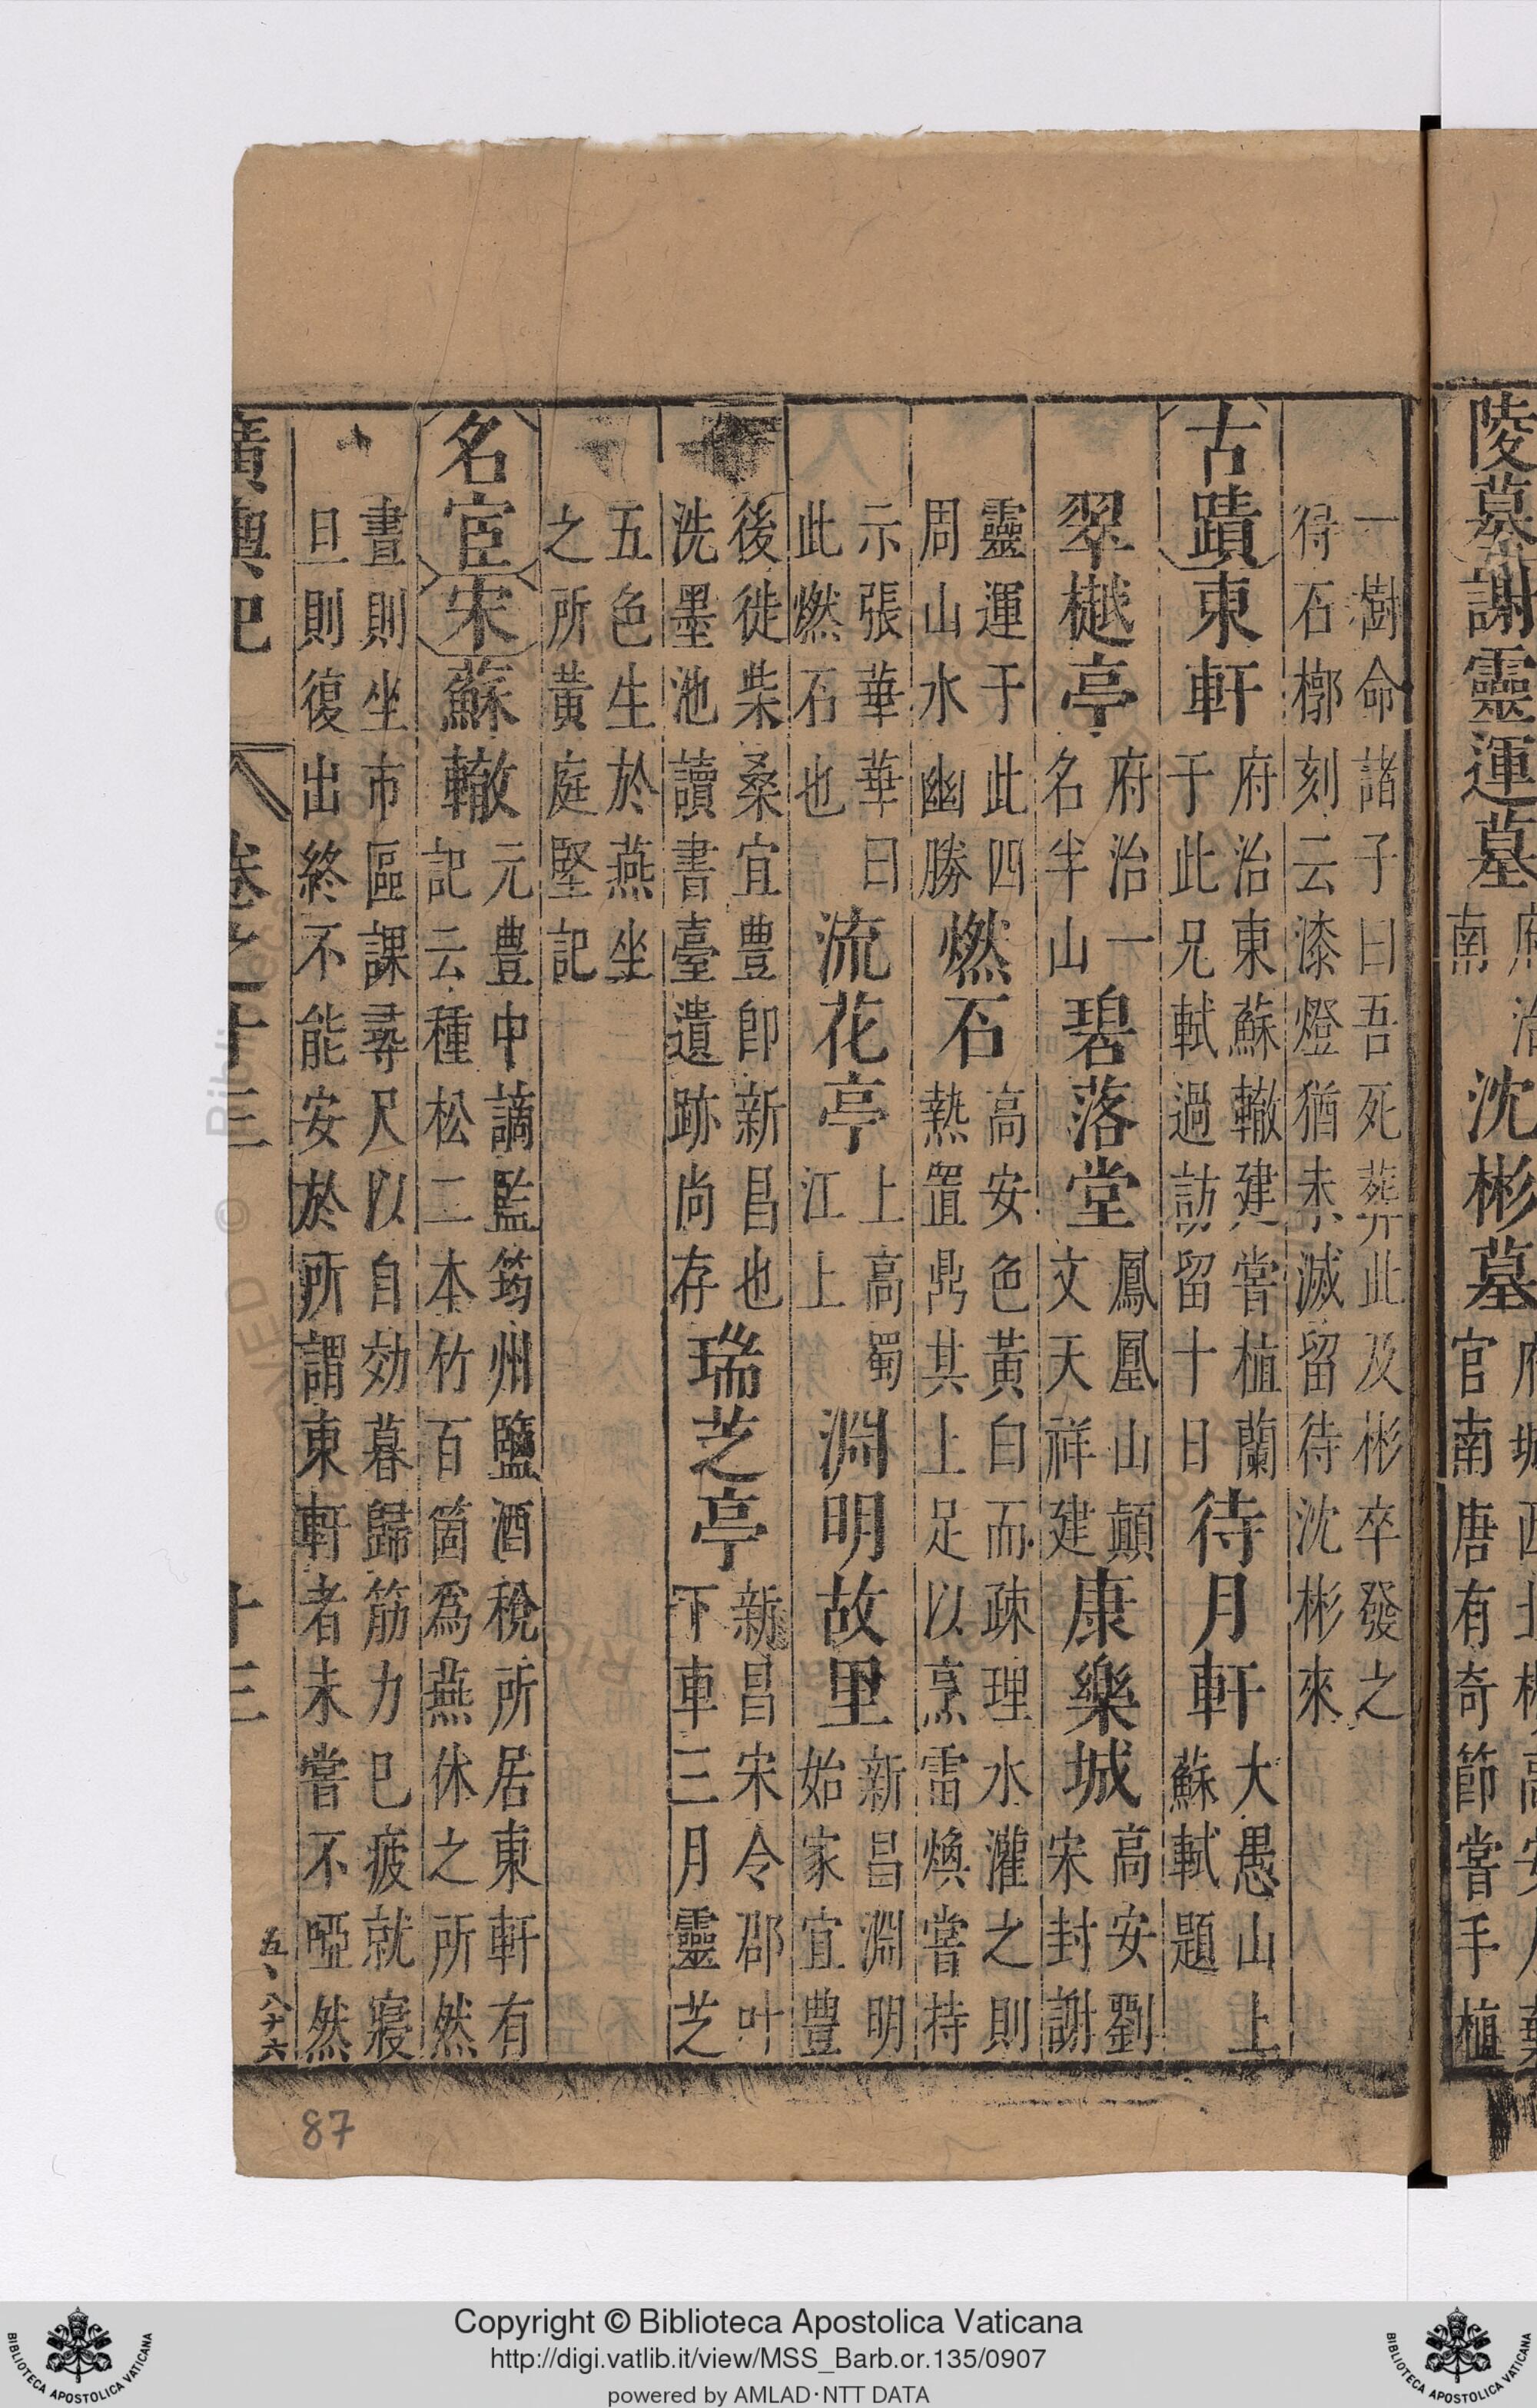 陵墓謝靈運墓南沈彬墓官南唐有奇節嘗手植
一樹命諸子曰吾死葬此及彬卒發之
得石槨刻云漆燈猶未滅留待沈彬來
古蹟東軒府治東蘇轍建嘗植蘭
于此兄軾過訪留十日待月軒大愚山上
蘇軾題
翠樾亭府治一
名半山碧落堂鳳凰山顛
文天祥建康樂城高安劉
宋封謝
靈運于此四
周山水幽勝燃石高安色黃白而疎理水灌之則
熱置鼎其上足以烹雷煥嘗持
示張華華曰
此燃石也流花亭上高蜀
江上淵明故里新昌淵明
始家宜豊
後徙柴桑宜豊卽新昌也
洗墨池讀書臺遺跡尚存瑞芝亭新昌宋令邵叶
下車三月靈芝
五色生於燕坐
之所黃庭堅記
名宦宋蘇轍元豊中謫監筠州鹽酒稅所居東軒有
記云種松二本竹百箇爲燕休之所然
晝則坐市區課尋尺以自効暮歸筋力已疲就寢
旦則復出終不能安於所謂東軒者未嘗不啞然
廣輿記 卷之十三 十三
五、八十六
87
Copyright © Biblioteca Apostolica Vaticana
http://digi.vatlib.it/view/MSS_Barb.or.135/0907
powered by AMLAD·NTT DATA
BIBLIOTECA APOSTOLICA VATICANA
BIBLIOTECA APOSTOLICA VATICANA